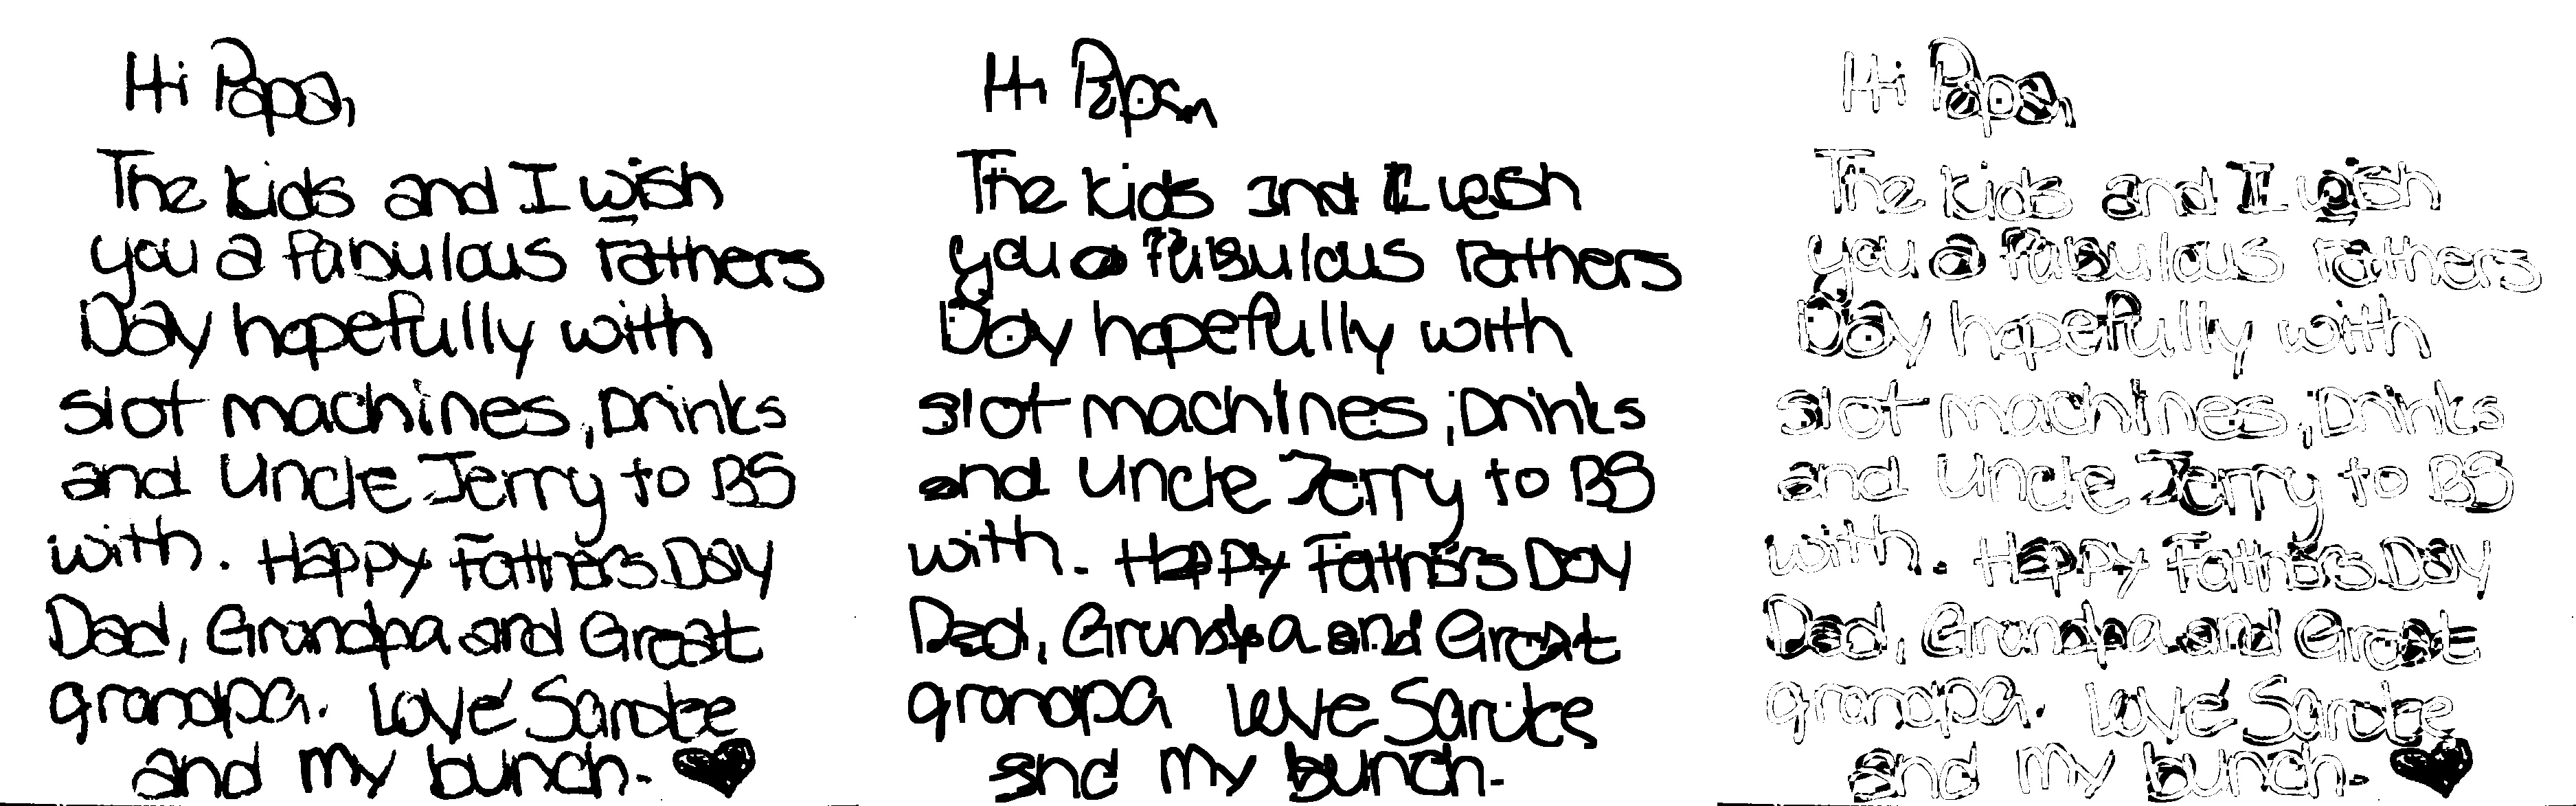 Hi Papa,
The kids and I wish
you a fabulous Fathers
Day hopefully with
slot machines, Drinks
and Uncle Jerry to BS
with. Happy Fathers Day
Dad, Grandpa and Great
grandpa. Love
and my bunch.
Hi Papa,
The kids and I wish
you a fabulous Fathers
Day hopefully with
slot machines, Drinks
and Uncle Jerry to BS
with. Happy Fathers Day
Dad, Grandpa and Great
grandpa Love
and my bunch.
Hi Papa,
The kids and I wish
you a fabulous Fathers
Day hopefully with
slot machines, Drinks
and Uncle Jerry to BS
with. Happy Fathers Day
Dad, Grandpa and Great
grandpa. Love
and my bunch.